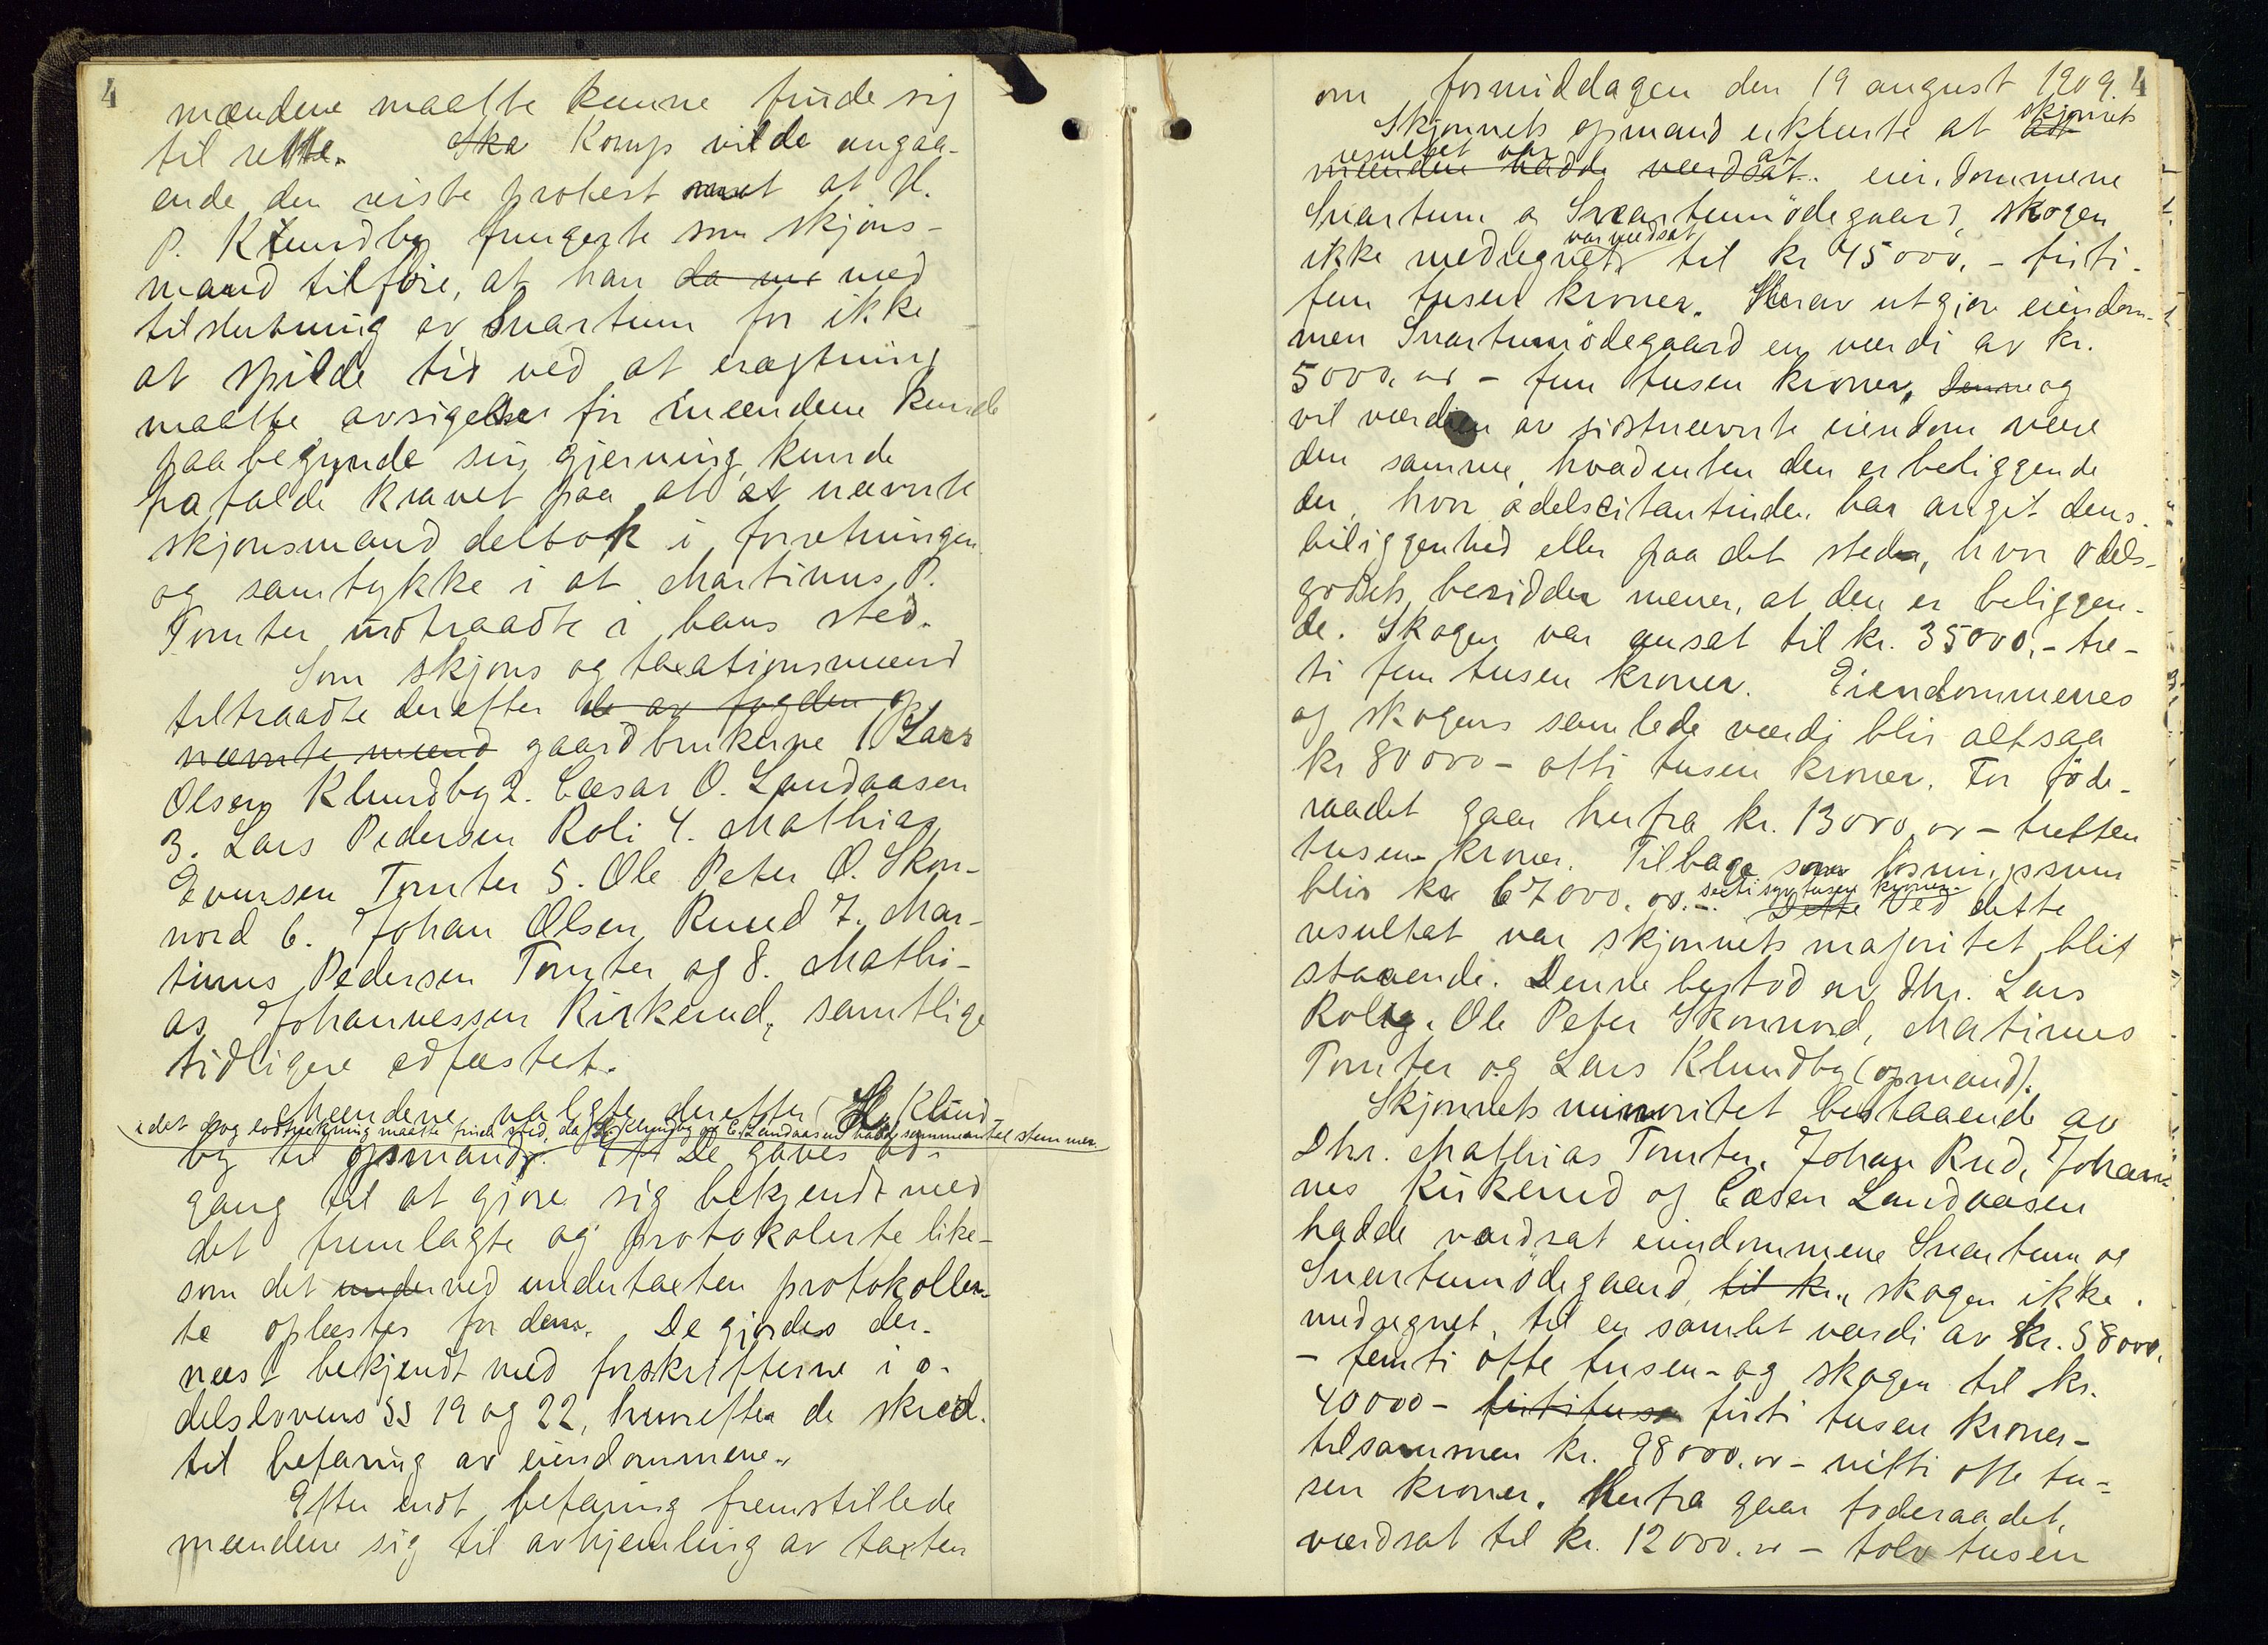 4
mændene maatte kunne finde sig
til rette. Ska Komp vilde angaa-
ende den reiste protest mot at H.
P. Klundby fungerte som skjøns-
mand tilføie, at han da me med
tilslutning av Svartum for ikke
at spilde tid ved at eragtning
maatte avsigelser før mændene kunde
paabegynde sin gjerning, kunde
frafalde kravet paa at at nævnte
skjønsmand deltok i forretningen
og samtykke i at Martinus P.
Tomter indtraadte i hans sted.
Som skjøns og taxationsmænd
tiltraadte derefter de av fogden op
nævnte mænd gaardbrukerne 1. Lars
Olsen Klundby 2. Cæsar O. Landaasen
3. Lars Pedersen Roli 4. Mathias
Evensen Tomter 5. Ole Peter O. Skon-
nord 6. Johan Olsen Ruud 7. Mar-
tinus Pedersen Tomter og 8. Mathi-
as Johannessen Kirkerud, samtlige
tidligere edfæstet.
Mændene valgte derefter L. Klund-
idet dog lodtrækning maatte finde sted, da L. Klundby og C. Landaasen hadde samme antal stemmer
by til opmand. De gaves ad-
gang til at gjøre sig bekjendt med
det fremlagte og protokolerte like-
som det under ved undertaxten protokoller-
te oplæstes for dem. De gjordes der-
næst bekjendt med forskrifterne i o-
delslovens §§ 19 og 22, hvorefter de skred
til befaring av eiendommene.
Efter endt befaring fremstillede
mændene sig til avhjemling av taxten
om formiddagen den 19 august 1909. 4
Skjønnets opmand erklærte at skjønnets
resultet var at
mændene hadde værdsat eiendommene
Svartum og Svartumødegaard, skogen
var værdsat
ikke medregnet, til kr 45000,- firti-
fem tusen kroner. Herav utgjør eiendom-
men Svartumødegaard en værdi av kr.
5000,00 - fem tusen kroner, Denne og
vil værdien av sidstnævnte eiendom være
den samme, hvadenten den er beliggende
der, hvor odelscitantinden har angit dens
beliggenhed eller paa det sted, hvor odels-
godsets besidder mener, at den er beliggen-
de. Skogen var anset til kr. 35000,- tre-
ti fem tusen kroner. Eiendommenes
og skogens samlede værdi blir altsaa
kr 80000 - otti tusen kroner. For føde-
raadet gaar herfra kr. 13000,00 - tretten
tusen kroner. Tilbage som løsningssum
blir kr 67000.00.- sexti syv tusen kroner. Dette Ved dette
resultat var skjønnets majoritet blit
staaende. Denne bestod av dhr. Lars
Rolig, Ole Peter Skonnord, Matinus
Tomter og Lars Klundby (opmand).
Skjønnets minoritet bestaaende av
Dhr. Mathias Tomter, Johan Rud, Johan-
nes Kirkerud og Cæsar Landaasen
hadde værdsat eiendommene Svartum og
Svartumødegaard til kr., skogen ikke
medregnet, til en samlet værdi av kr. 58000,
- femti otte tusen - og skogen til kr.
40000 - firtituse firti tusen kroner -
tilsammen kr. 98000.00 - nitti otte tu-
sen kroner. Herfra gaar føderaadet,
værdsat til kr. 12000.00 - tolv tusen